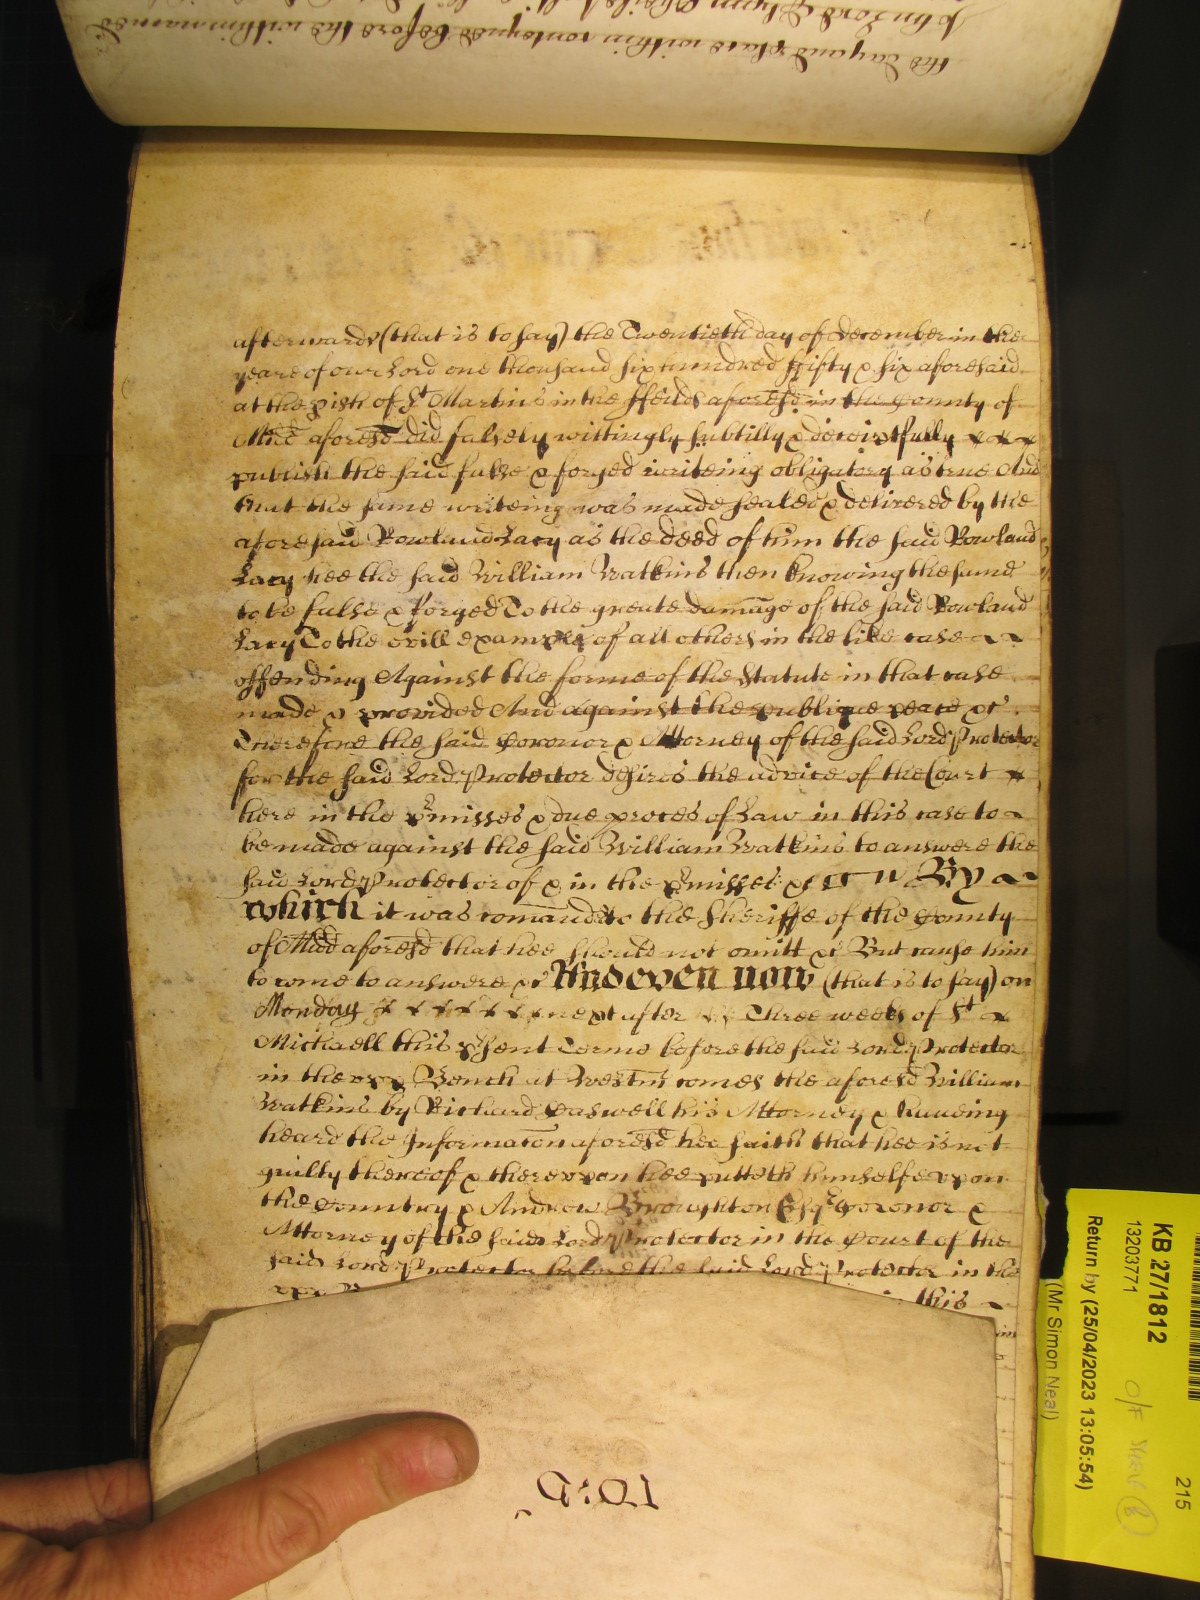 the day and place within conteyned before the within named
afterwards (that is to say) the Twentieth day of December in the
yeare of our Lord one thousand six hundred fifty & six aforesaid
at the pish of St Martins in the ffeilds aforesd in the County of
Midd aforesd did falsely wittingly subtilly & deceiptfully
publish the said false & forged writeing obligatory as true And
that the same writeing was made sealed & delivered by the
aforesaid Rowland Lacy as the deed of him the said Rowland
Lacy hee the said William Watkins then knowing the same
to be false & forged To the greate damage of the said Rowland
Lacy To the evill example of all others in the like case
offending Against the forme of the Statute in that case
made & provided And against the publique peace &c
Therefore the said Coronor & Attorney of the said Lord Protector
for the said Lord Protector desires the advice of the Court
here in the pmisses & due proces of Law in this case to
be made against the said William Watkins to answere the
said Lord Protector of & in the pmisses &c By
which it was comanded to the Sheriffe of the County
of Midd aforesd that hee should not omitt &c But cause him
to come to answere &c And even now (that is to say) on
Monday next after Three weeks of St
Michaell this psent Terme before the said Lord Protector
in the upp Bench at Westmr comes the aforesd William
Watkins by Richard Caswell his Attorney & haueing
heard the Informacon aforesd hee saith that hee is not
guilty thereof & thereupon hee putteth himselfe upon
the Country & Andrew Broughton Esqr Coronor &
Attorney of the said Lord Protector in the Court of the
said Lord Protector before the said Lord Protector in the
this
KB 27/1812
13203771
Return by (25/04/2023 13:05:54)
(Mr Simon Neal)
215